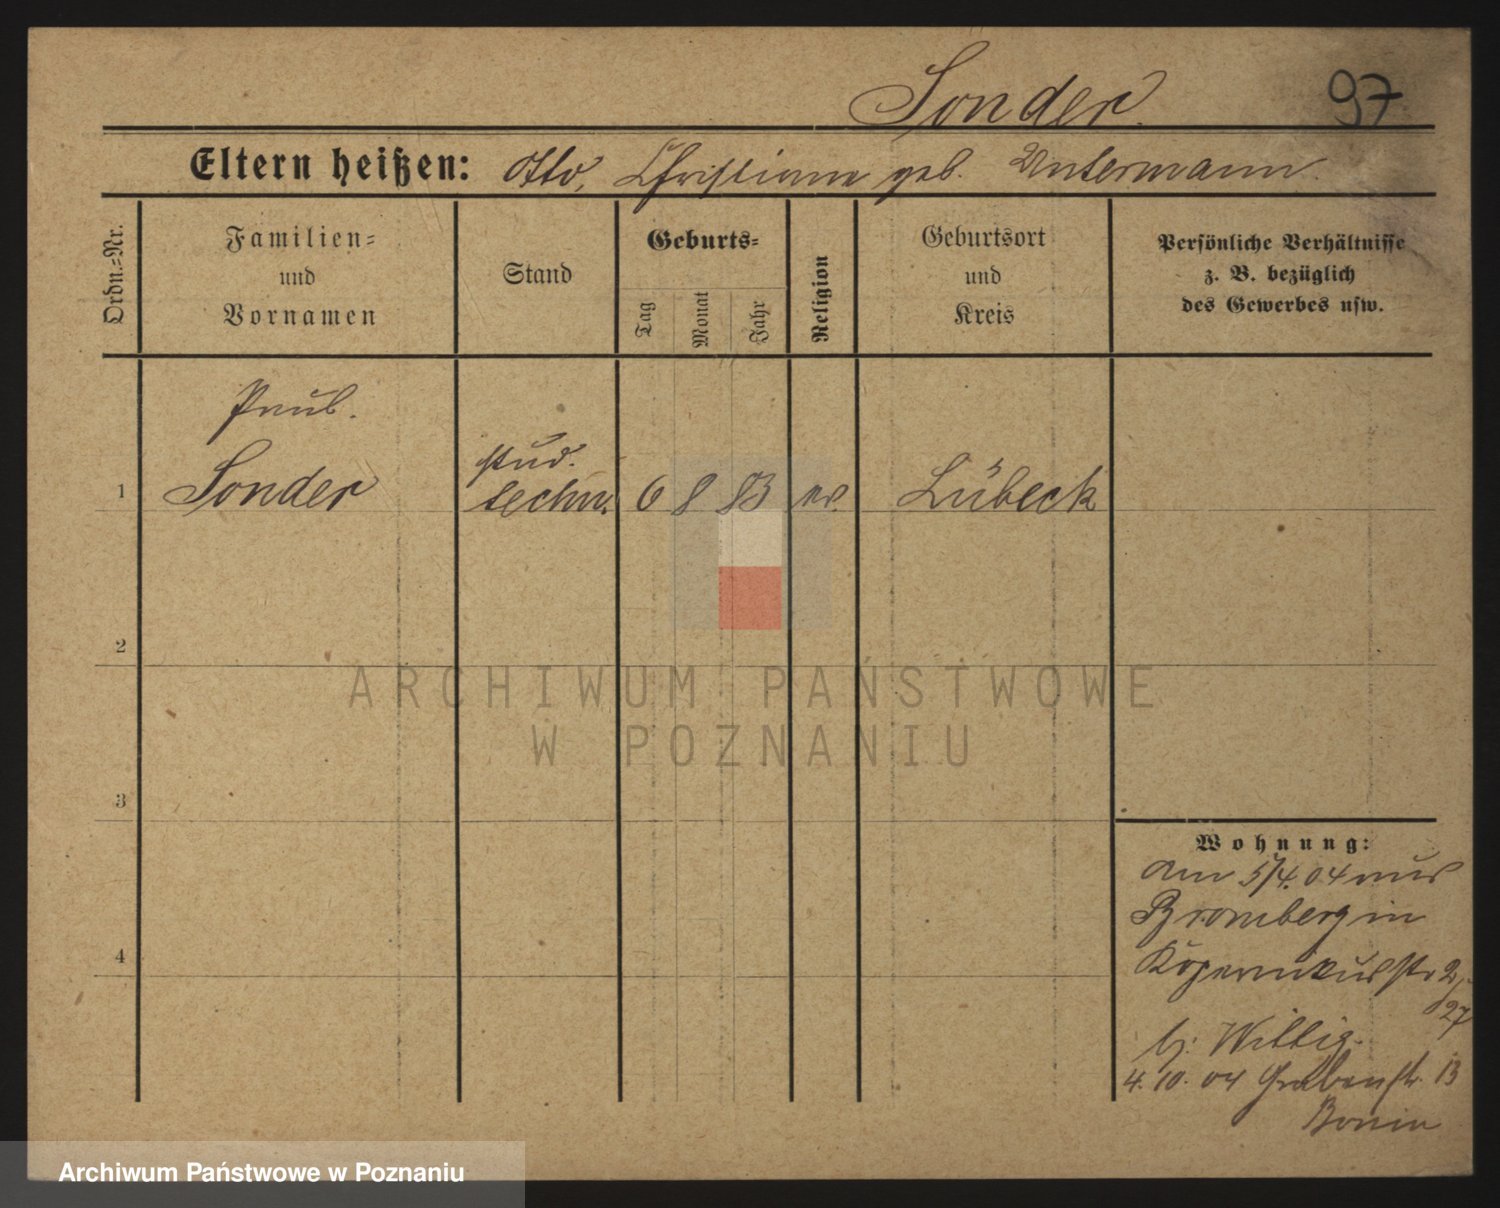 Sonder.
97
Eltern heißen: Otto, Christiane geb. Untermann.
Ordn.=Nr.
Familien=
und
Vornamen
Stand
Geburts=
Tag
Monat
Jahr
Religion
Geburtsort
und
Kreis
Persönliche Verhältnisse
z. B. bezüglich
des Gewerbes usw.
Paul.
1 Sonder
stud.
techn.
6 8 83 ev. Lübeck
2
3
4
Wohnung:
Am 5/4. 04 aus
Bromberg in
Kopernikusstr 2
27
bj. Wittig.
4. 10. 04 Grabenstr. 13
Bonin
ARCHIWUM PAŃSTWOWE
W POZNANIU
Archiwum Państwowe w Poznaniu